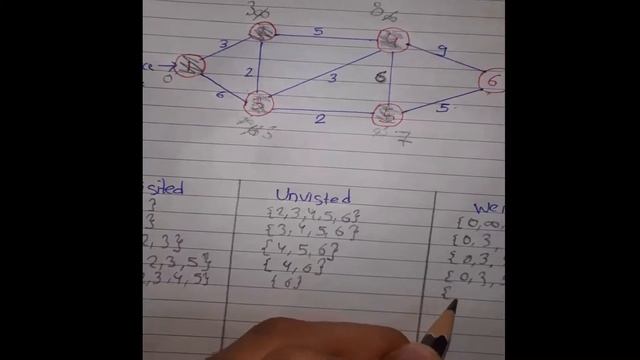 3 ∞ 8 ∞
3 5 4 9
ce 1 2 3 6 6
0 6 3 5 5
2 7
sited Unvisted Wei
} {2,3,4,5,6} {0,∞,
} {3,4,5,6} {0,3,
2,3} {4,5,6} {0,3,
2,3,5} {4,6} {0,3,
2,3,4,5} {6} {